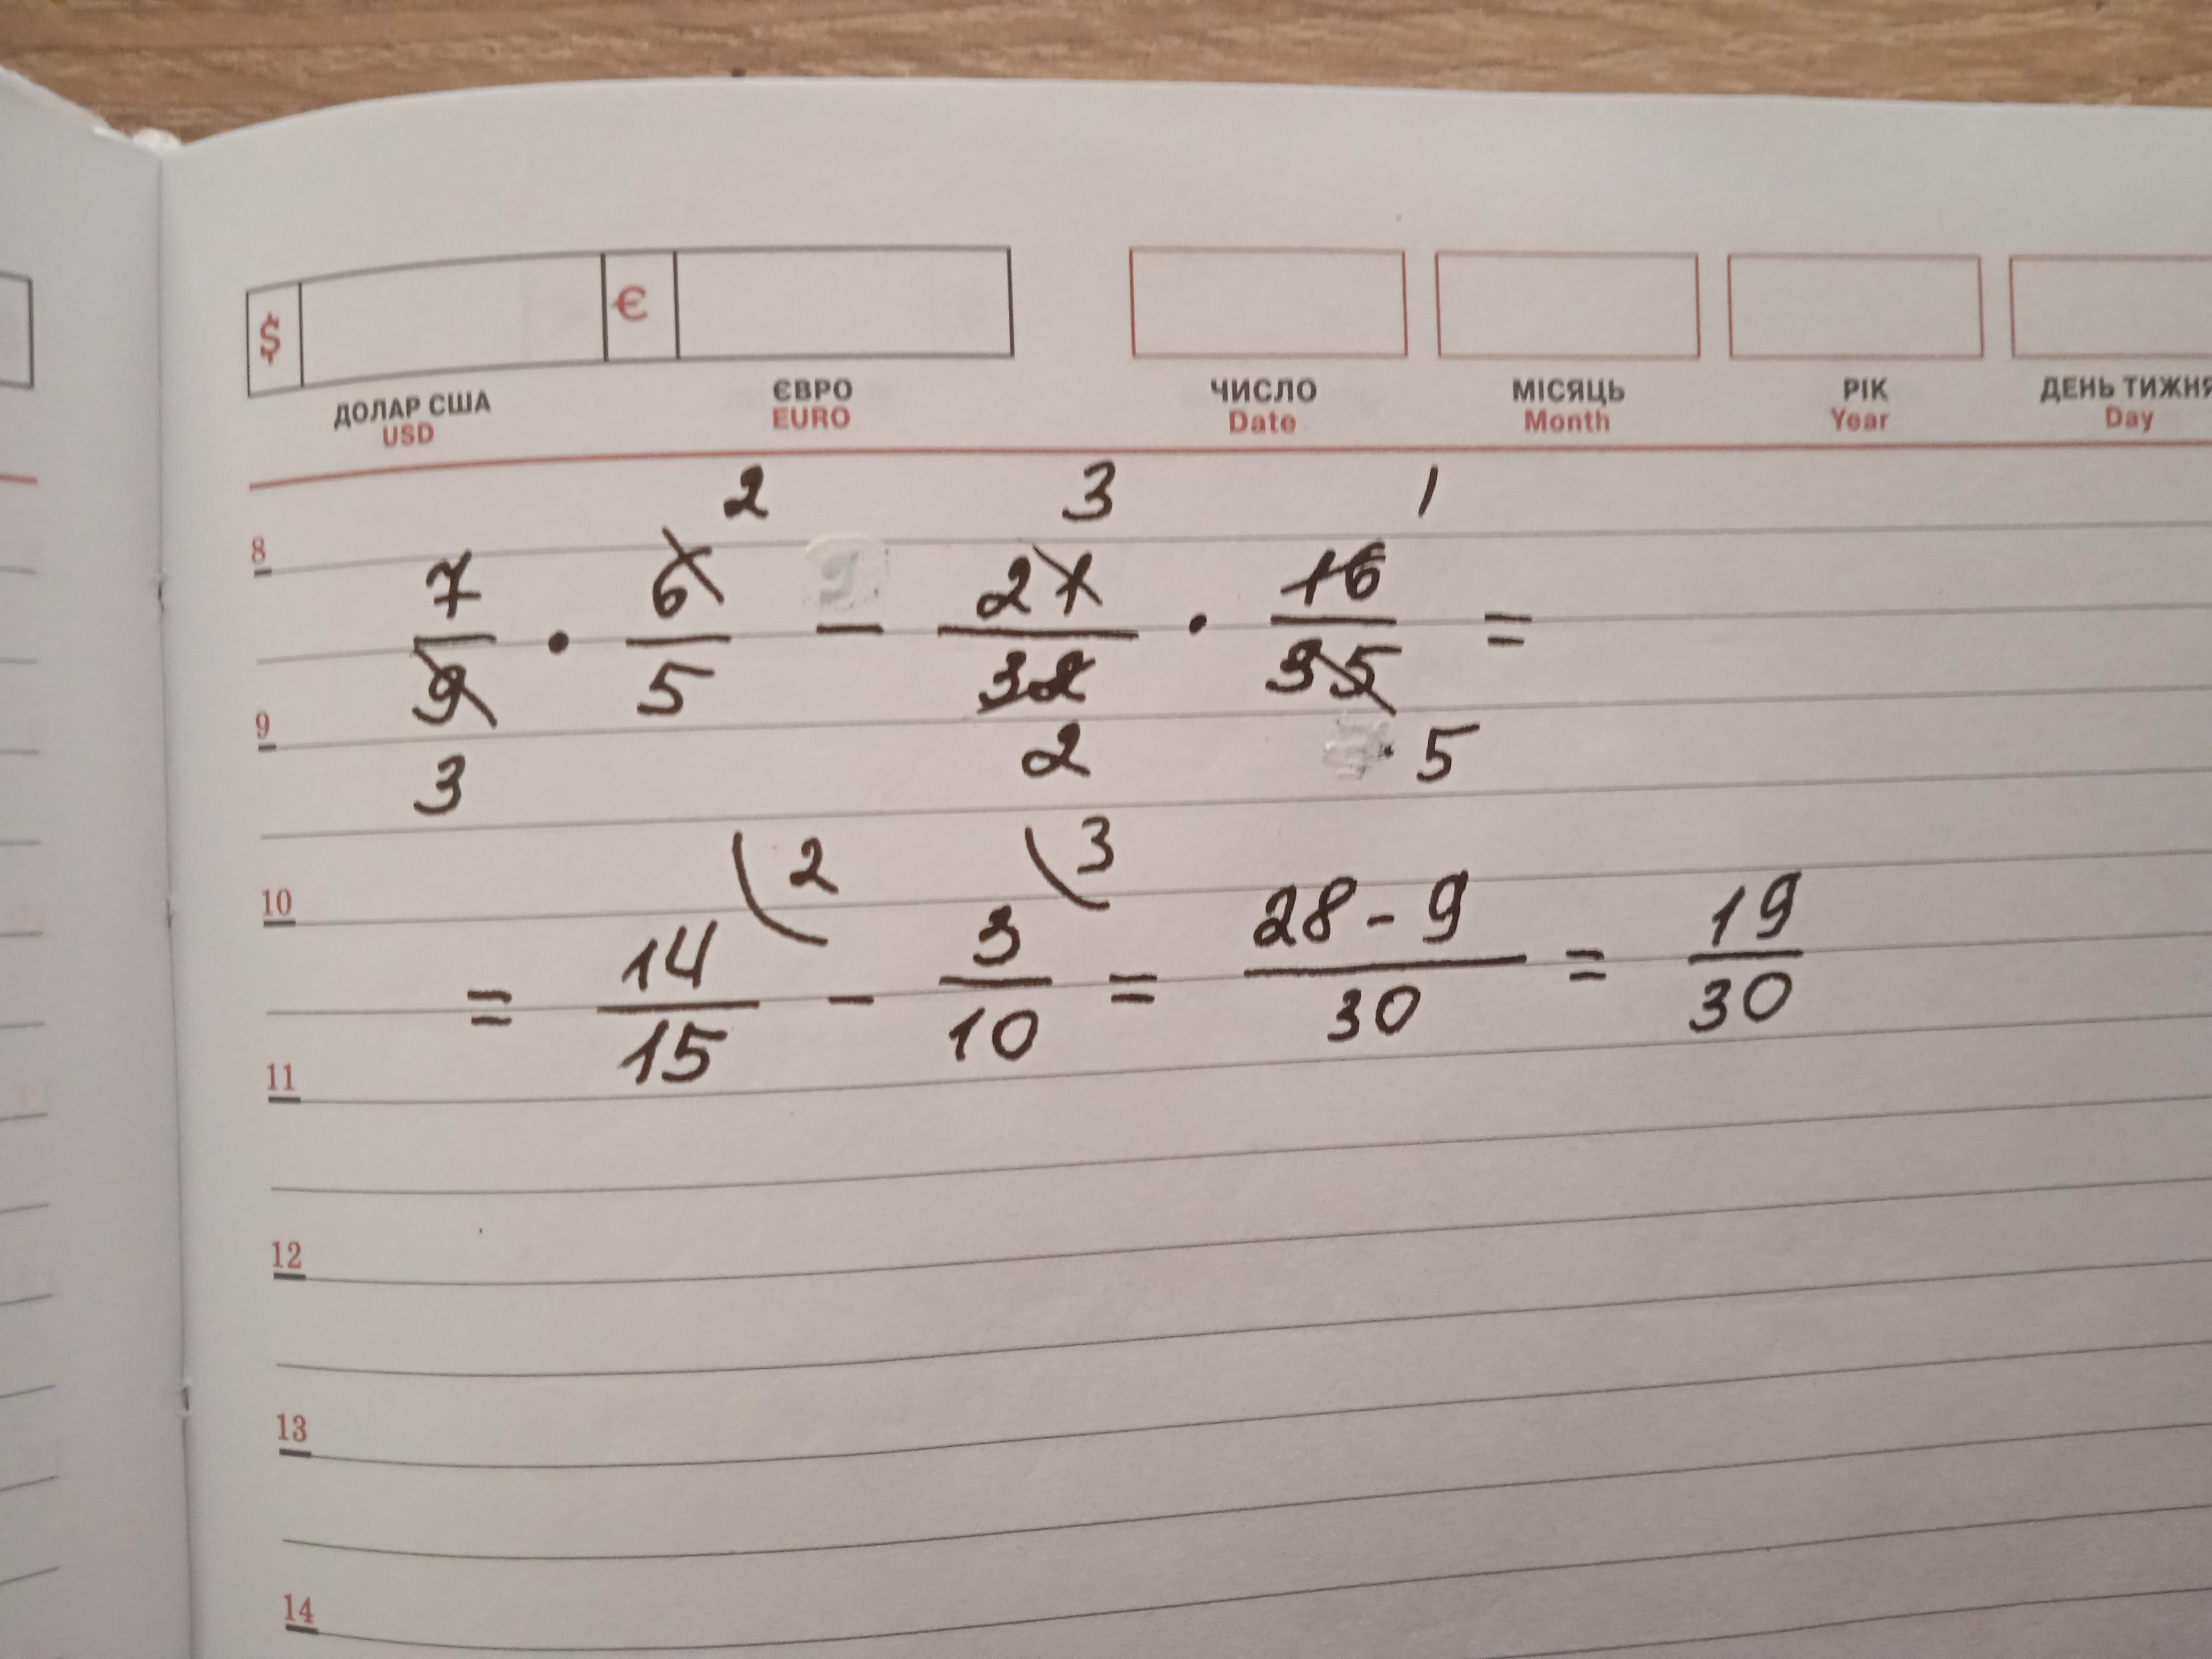 $ €
ДОЛАР США ЄВРО ЧИСЛО МІСЯЦЬ РІК ДЕНЬ ТИЖНЯ
USD EURO Date Month Year Day
2 3 1
8
7/9 · 6/5 − 21/32 · 16/35 =
9
3 2 · 5
2 3
10
= 14/15 − 3/10 = 28 - 9/30 = 19/30
11
12
13
14